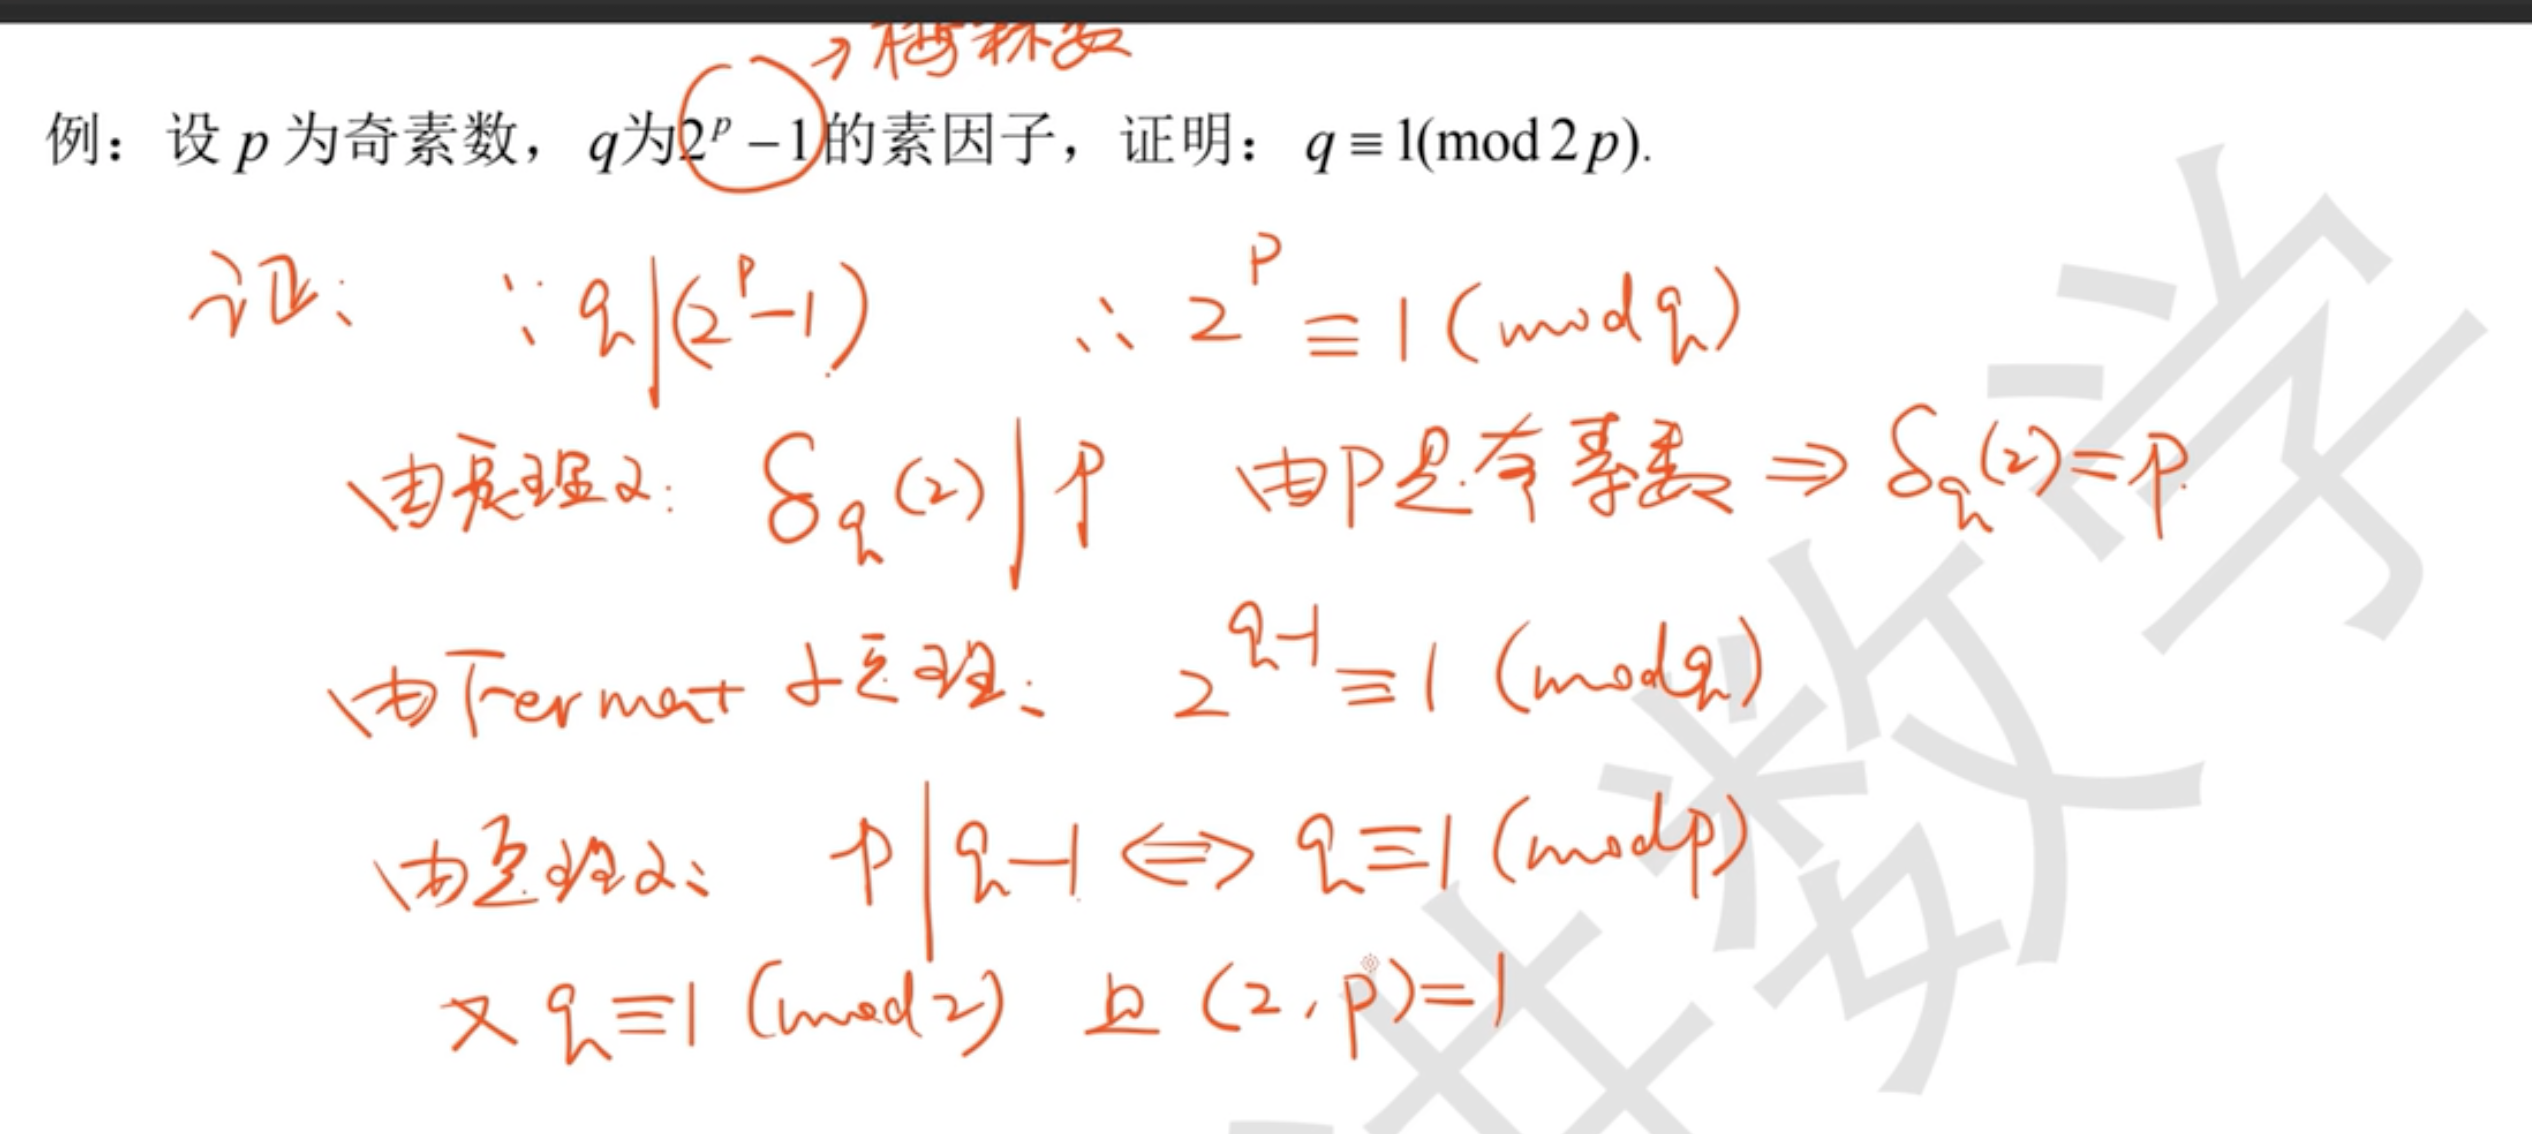 →梅森数
例：设 p 为奇素数，q为2^p − 1的素因子，证明：q ≡ 1(mod 2p).
证： ∵ q|(2^p−1) ∴ 2^p ≡ 1 (mod q)
由定理2: δ_q(2) | p 由p是奇素数 ⇒ δ_q(2)=p.
由Fermat小定理： 2^{q−1} ≡ 1 (mod q)
由定理2： p | q−1 ⇔ q≡1 (mod p)
又 q≡1 (mod 2) 且 (2, p)=1
数学